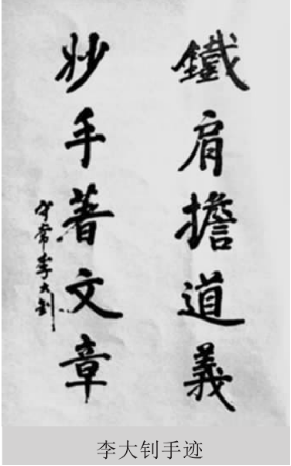 鐵肩擔道義
妙手著文章
守常李大釗
李大钊手迹